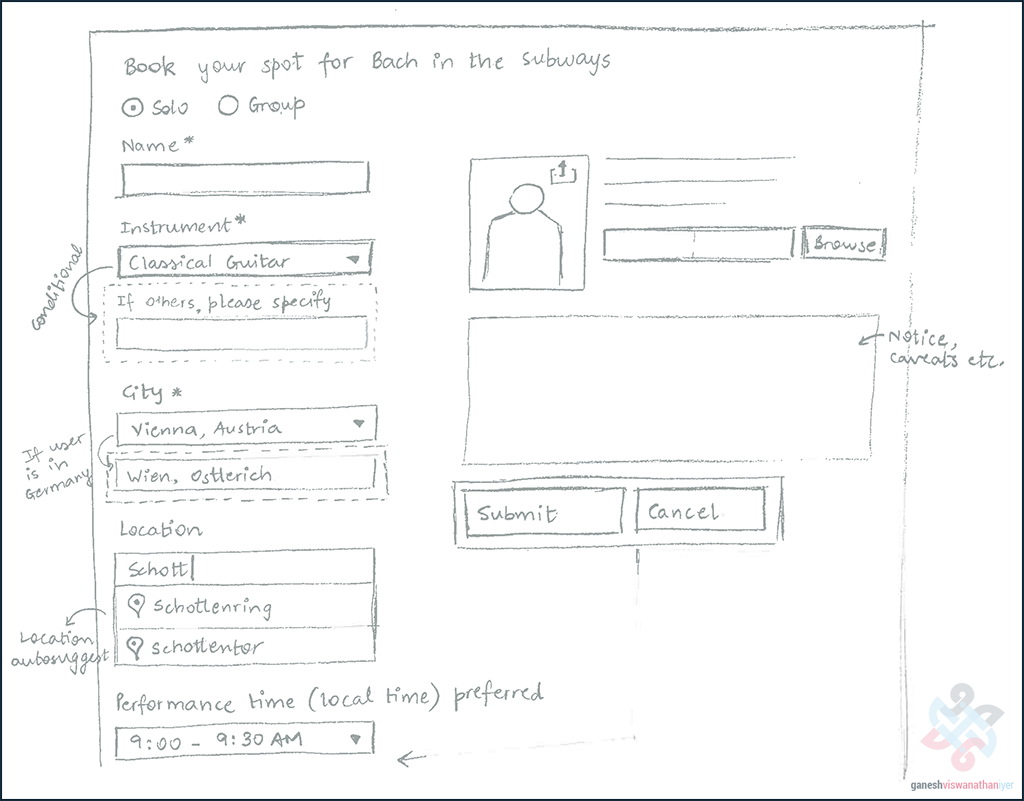 Book your spot for Bach in the subways
Solo Group
Name*
Instrument*
Classical Guitar
conditional
If others, please specify
City *
Vienna, Austria
If user
is in
Germany
Wien, Ostlerich
Location
Schott
Schottenring
Schottentor
Location
autosuggest
Performance time (local time) preferred
9:00 - 9:30 AM
Browse
Notice,
caveats etc.
Submit Cancel
ganeshviswanathaniyer